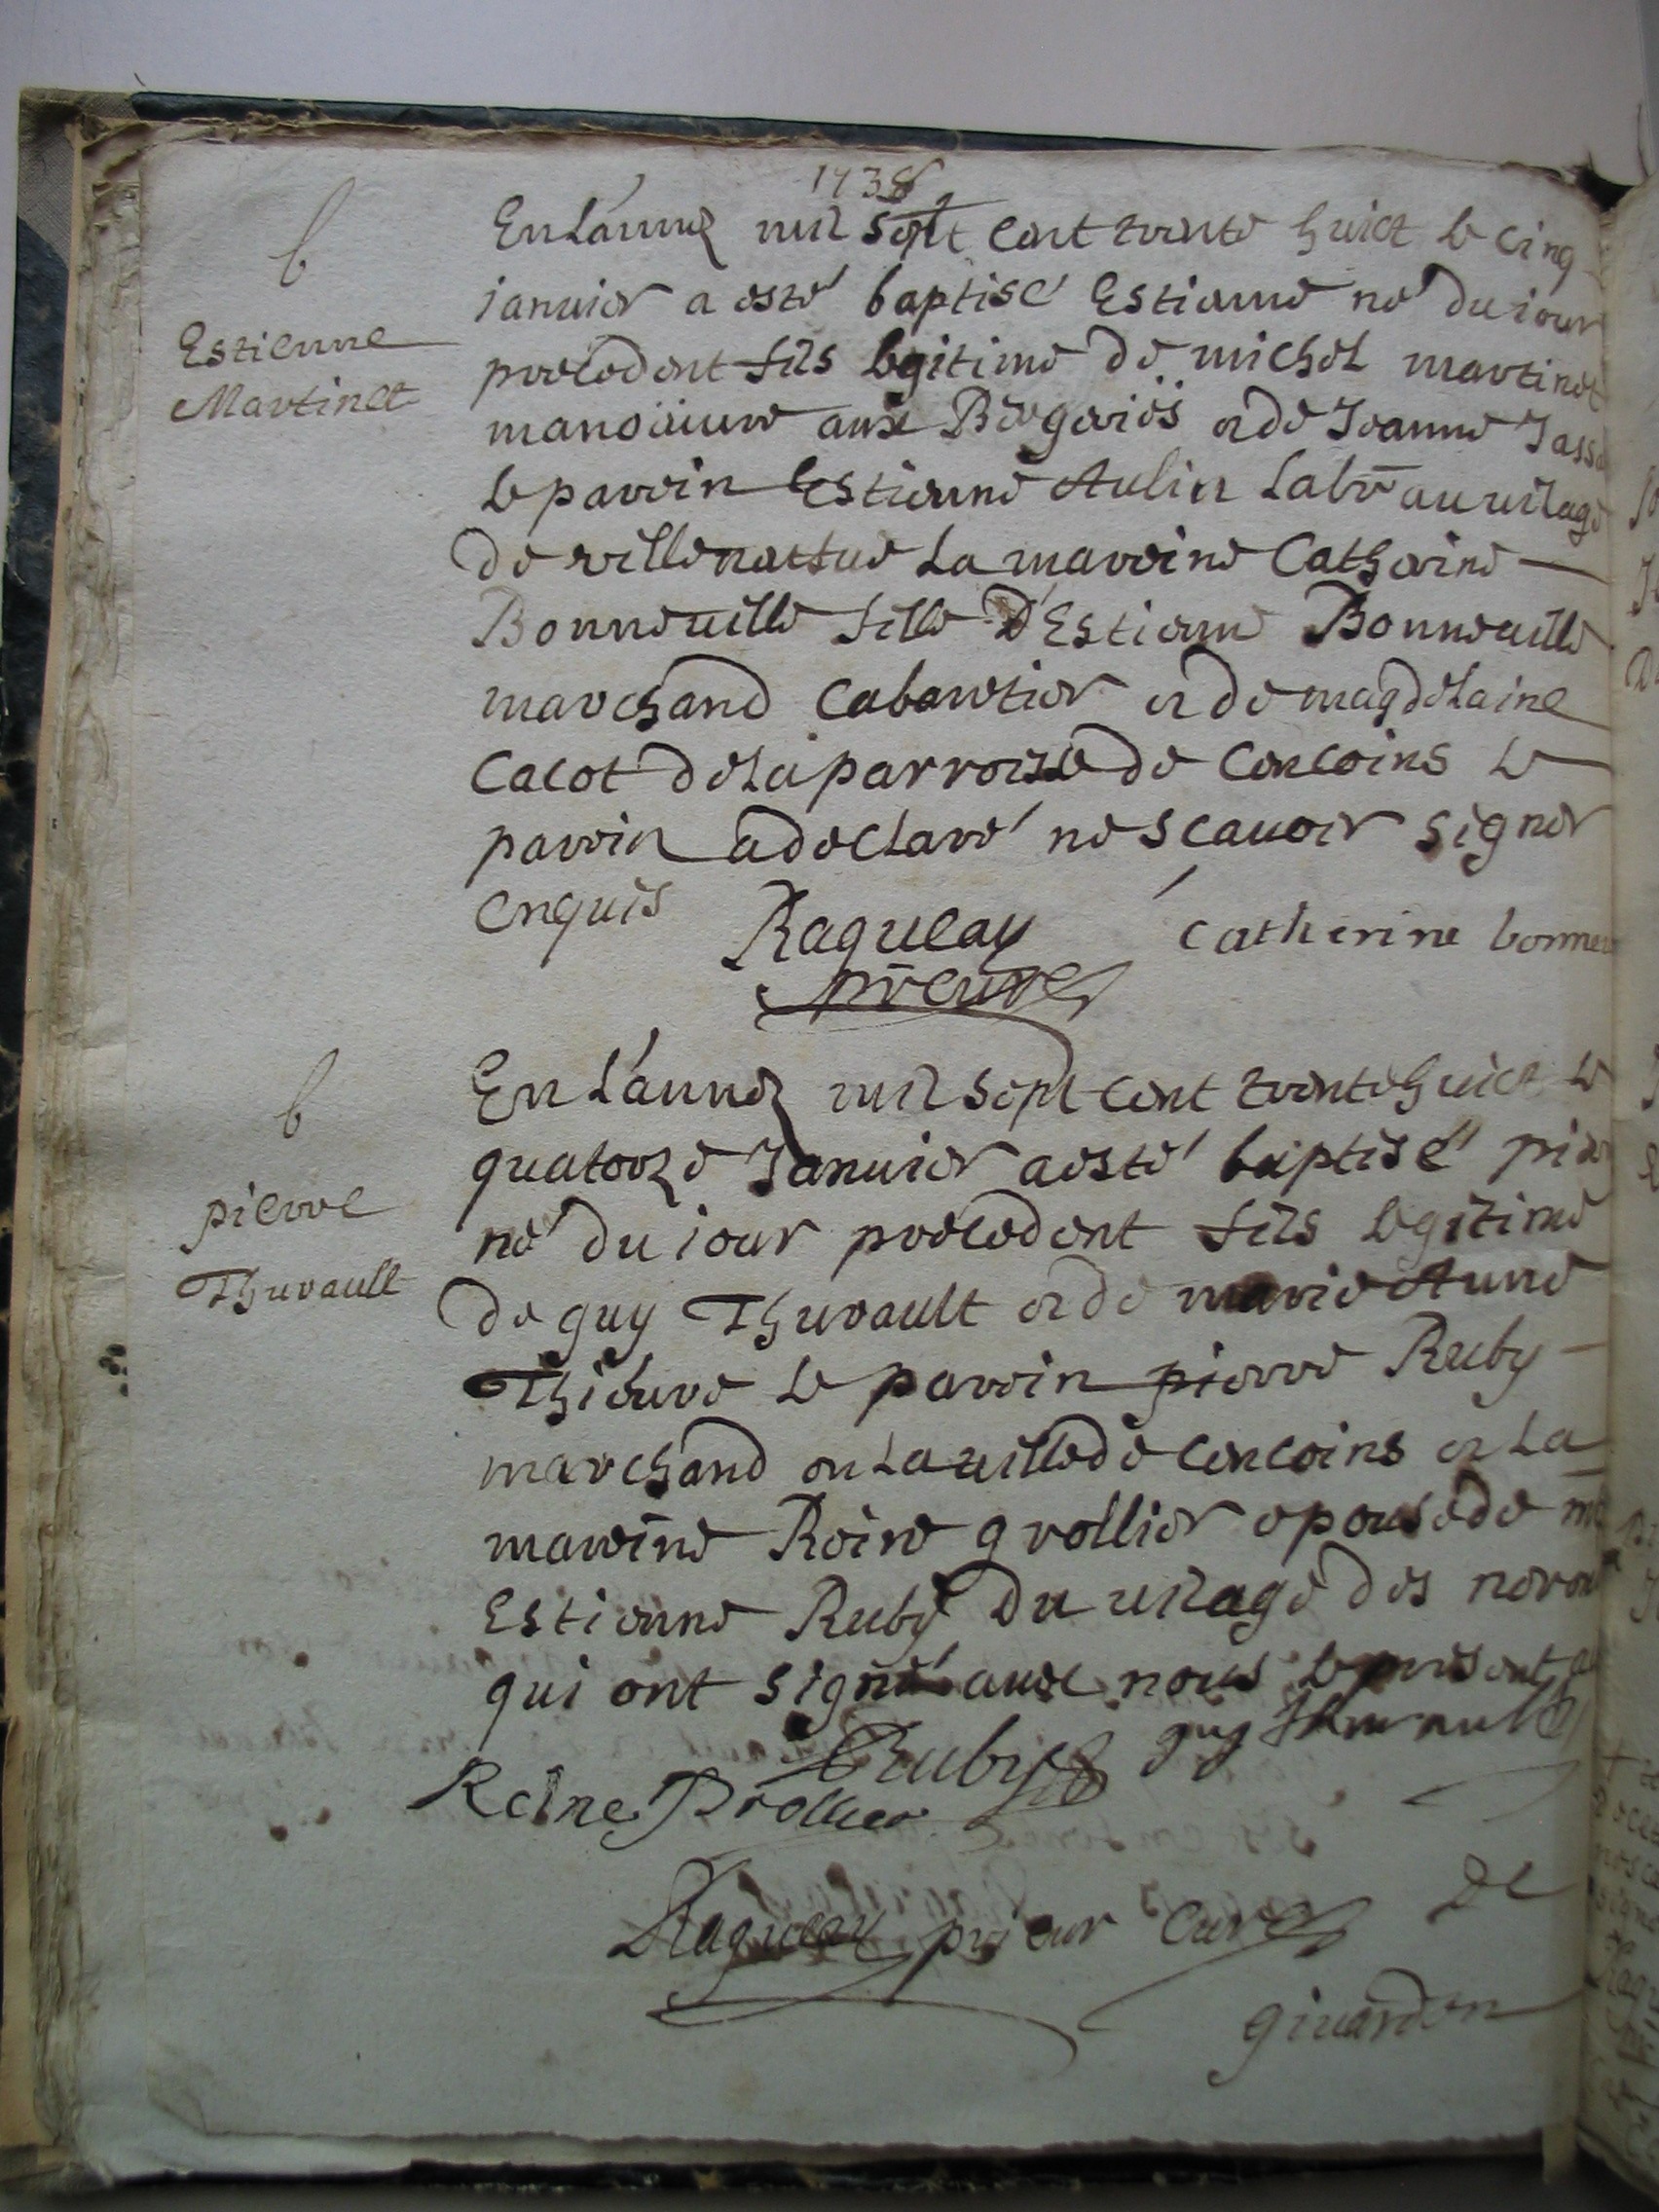 1738
b
Estienne
Martinet
En L'année mil sept cent trente huict le cinq
ianuier a esté baptisé Estienne né du iour
precedent fils legitime de michel martinet
manoäuure aux Bergeriës et de Jeanne
le parein Estienne Aulin Labr au uilage
de La mareine Catherine
Bonneuille fille D'Estienne Bonneuille
marchand Cabaretier et de magdelaine
Cacot de La parroisse de Cencoins le
parein a declaré ne scauoir signer
enquis
Ragueau Catherine bonne
pr curé
b
pierre
Thurault
En L'année mil sept cent trente huict le
quatorze Januier a esté baptisé
né du iour precedent fils legitime
de guy Thurault et de marie Anne
le parein pierre Ruby
marchand en La uille de Cencoins et La
mareine Reine grollier epouse de
Estienne Ruby du uilage des
qui ont signé auec nous le present
Ruby guy
Reine
Ragueau prieur Curé de
giuardon